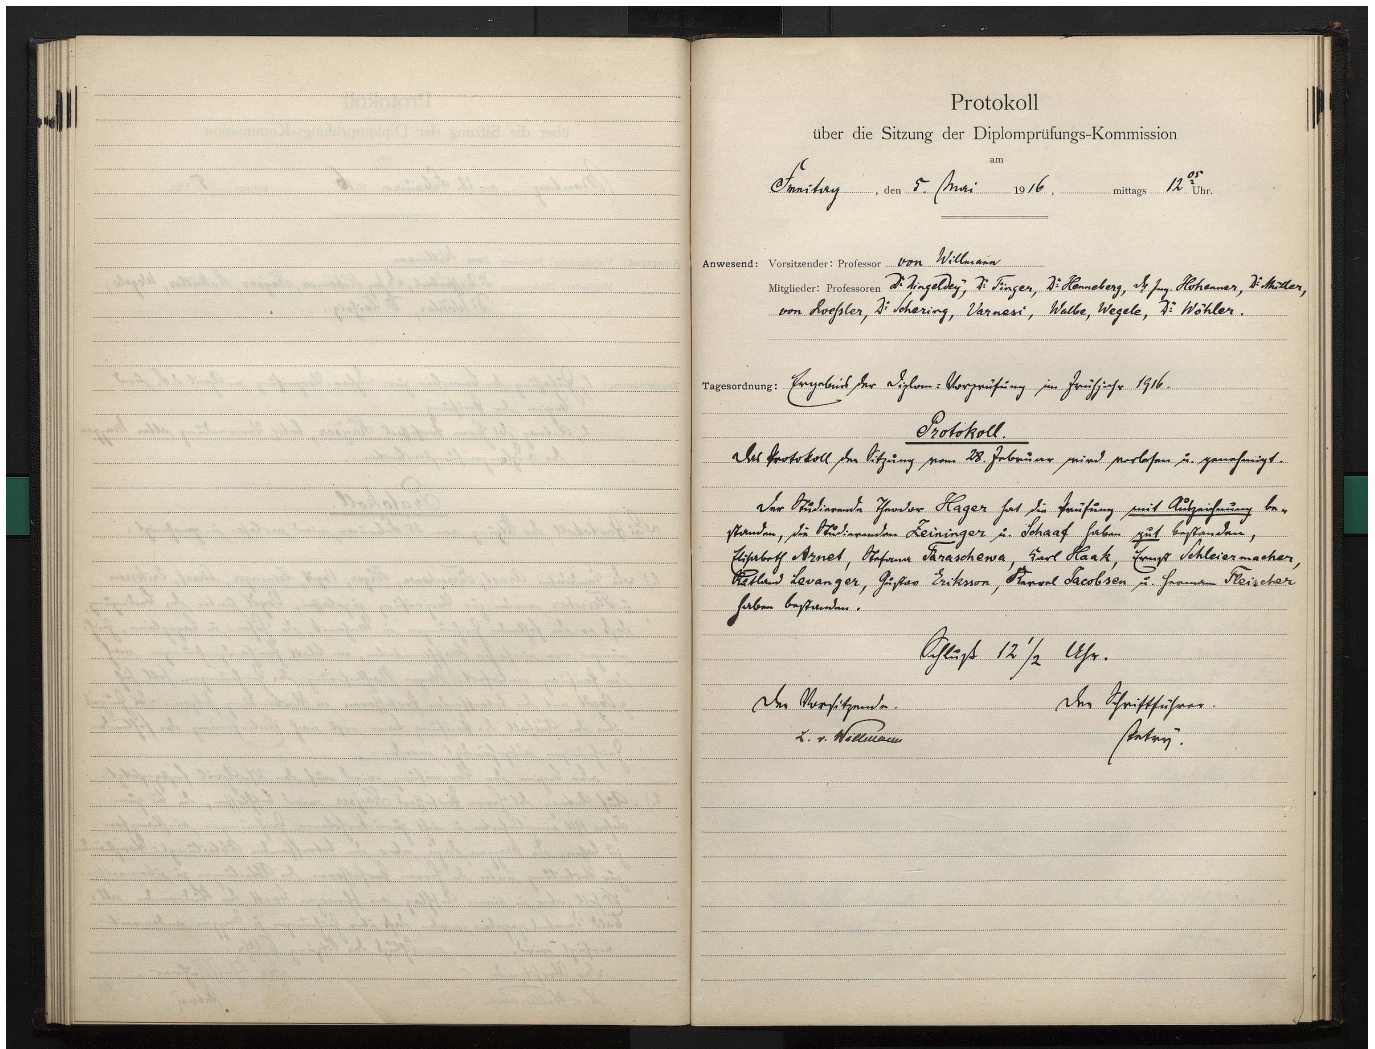 Protokoll
über die Sitzung der Diplomprüfungs-Kommission
am
Freitag, den 5. Mai 1916, mittags 12 05 Uhr.
Anwesend: Vorsitzender: Professor von Willmann
Mitglieder: Professoren Dr. Dingeldey, Dr. Finger, Dr. Henneberg, Dr. Ing. Hohenner, Dr. Müller,
von Roessler, Dr. Schering, Varnesi, Walbe, Wegele, Dr. Wöhler.
Tagesordnung: Ergebnis der Diplom-Vorprüfung im Frühjahr 1916.
Protokoll.
Das Protokoll der Sitzung vom 28. Februar wird verlesen u. genehmigt.
Der Studierende Theodor Hager hat die Prüfung mit Auszeichnung be-
standen, die Studierenden Zeininger u. Schaaf haben gut bestanden,
Elisabeth Arnet, Stefana Taraschewa, Karl Haak, Ernst Schleiermacher,
Levanger, Gustav Eriksson, Jacobsen u. Hermann Fleischer
haben bestanden.
Schluß 12 1/2 Uhr.
Der Vorsitzende. Der Schriftführer.
L. v. Willmann Petry.